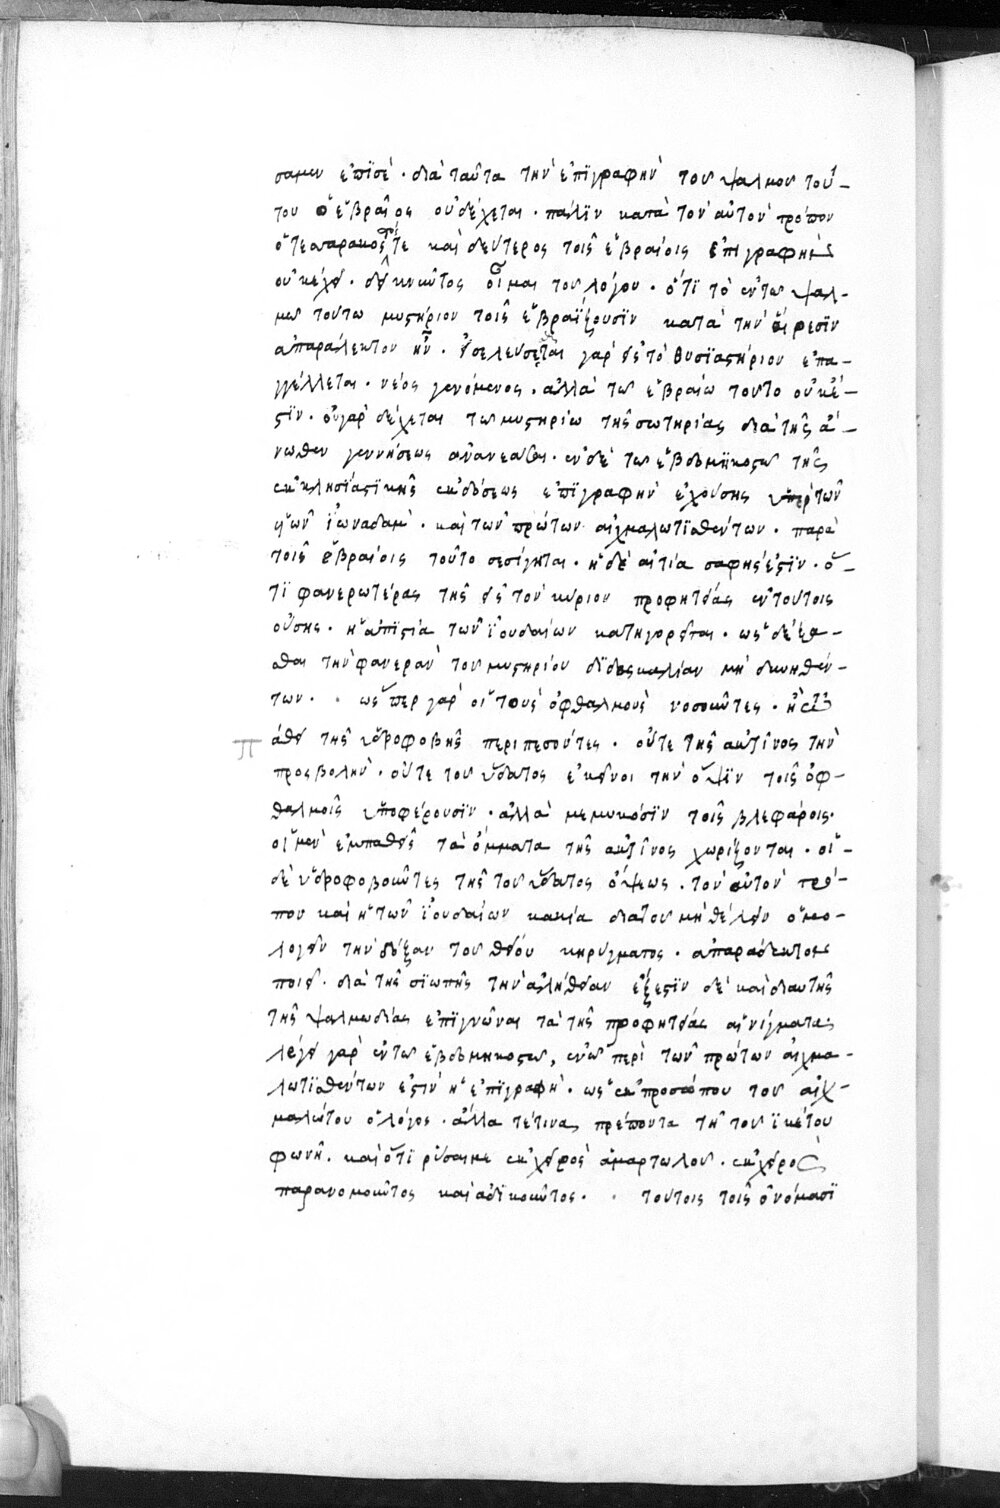 σαμεν ἐπὶ σέ · διὰ ταῦτα τὴν ἐπϊγραφὴν τοῦ ψαλμοῦ τού-
του ὁ ἑβραῖος οὐ δέχεται · πάλϊν κατὰ τὸν αὐτὸν τρόπον
ὁ τεσσαρακοστὸς καὶ δεύτερος τοῖς ἑβραίοις ἐπιγραφὴν
οὐκ ἔχει · δεικνύντος οἶμαι τοῦ λόγου · ὅτϊ τὸ ἐν τῶ ψαλ-
μῶ τούτω μυστήριον τοῖς ἑβραΐζουσϊν κατὰ τὴν αἵρεσϊν
ἀπαράδεκτον ἦν · εἰσελεύσεσθαι γὰρ εἰς τὸ θυσϊαστήριον ἐπα-
γγέλλεται · νέος γενόμενος · ἀλλὰ τῶ ἑβραίω τοῦτο οὐκ ἔ-
στϊν · οὐ γὰρ δέχεται τῶ μυστηρίω τῆς σωτηρίας διὰ τῆς ἄ-
νωθεν γεννήσεως ἀνανεωθῆναι · ἐν δὲ τῶ ἑβδομηκοστῶ τῆς
ἐκκλησϊαστϊκῆς ἐκδόσεως ἐπϊγραφὴν ἐχούσης ὑπὲρ τῶν
υἱῶν ἰωναδὰμ · καὶ τῶν πρώτων αἰχμαλωτϊσθέντων · παρὰ
τοῖς ἑβραίοις τοῦτο σεσίγηται · ἡ δὲ αἰτία σαφής ἐστϊν · ὅ-
τϊ φανερωτέρας τῆς εἰς τὸν κύριον προφητείας ἐν τούτοις
οὔσης · ἡ ἀπϊστία τῶν ϊουδαίων κατηγορεῖται · ὡς δέξα-
σθαι τὴν φανερὰν τοῦ μυστηρίου δϊδασκαλίαν μὴ δυνηθέν-
των · ὥσπερ γὰρ οἱ τοὺς ὀφθαλμοὺς νοσοῦντες · ἢ τῶ
πάθει τῆς ὑδροφοβῆς περιπεσόντες · οὔτε τῆς ἀκτῖνος τὴν
προσβολὴν · οὔτε τοῦ ὕδατος ἐκεῖνοι τὴν ὄψϊν τοῖς ὀφ-
θαλμοῖς ὑποφέρουσϊν · ἀλλὰ μεμυκόσϊν τοῖς βλεφάροις·
οἱ μὲν ἐμπαθεῖς τὰ ὄμματα τῆς ἀκτῖνος χωρίζονται · οἱ-
δὲ ὑδροφοβοῦντες τῆς τοῦ ὕδατος ὄψεως · τὸν αὐτὸν τρό-
πον καὶ ἡ τῶν ϊουδαίων κακία διὰ τοῦ μὴ θέλειν ὁμο-
λογεῖν τὴν δόξαν τοῦ θείου κηρύγματος · ἀπαράδεκτον
ποιεῖ · διὰ τῆς σϊωπῆς τὴν ἀλήθειαν ἔξεστϊν δὲ καὶ δι αὐτῆς
τῆς ψαλμωδίας ἐπϊγνῶναι τὰ τῆς προφητείας αἰνίγματα
λέγει γὰρ ἐν τῶ ἑβδομηκοστῶ, ἐν ὧ περὶ τῶν πρώτων αἰχμα-
λωτϊσθέντων ἐστὶν ἡ ἐπϊγραφὴ · ὡς ἐκ προσώπου τοῦ αἰχ-
μαλώτου ὁ λόγος · ἄλλα τέ τινα πρέποντα τῆ τοῦ ϊκέτου
φωνῆ · καὶ ὅτϊ ῥῦσαι με ἐκ χειρὸς ἁμαρτωλοῦ · ἐκ χειρὸς
παρανομοῦντος καὶ ἀδϊκοῦντος · τούτοις τοῖς ὀνόμασϊ